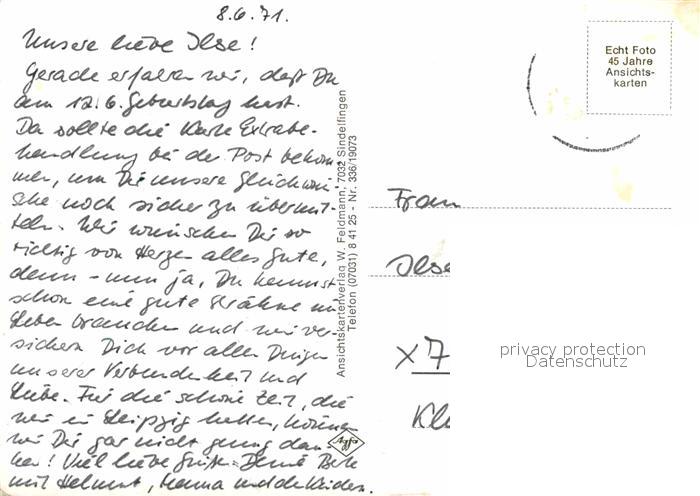 8.6.71.
Unsere liebe Ilse!
Gerade erfahren wir, daß Du
am 12.6. Geburtstag hast.
Da sollte die Karte Extrabe-
handlung bei der Post bekom-
men, um Dir unsere Glückwün-
sche noch sicher zu übermit-
teln. Wir wünschen Dir so
richtig von Herzen alles Gute,
denn - nun ja, Du kannst
schon eine gute Strähne im
Leben brauchen und wir ver-
sichern Dich vor allen Dingen
unserer Verbundenheit und
Liebe. Für die schöne Zeit, die
wir in Leipzig hatten, können
wir Dir gar nicht genug dan-
ken! Viel liebe Grüße Deine
mit Helmut, und die Kinder.
Ansichtskartenverlag W. Feldmann, 7032 Sindelfingen
Telefon (07031) 8 41 25 - Nr. 336/19073
Agfa
Echt Foto
45 Jahre
Ansichts-
karten
Frau
Ilse
X7
Kl
privacy protection
Datenschutz